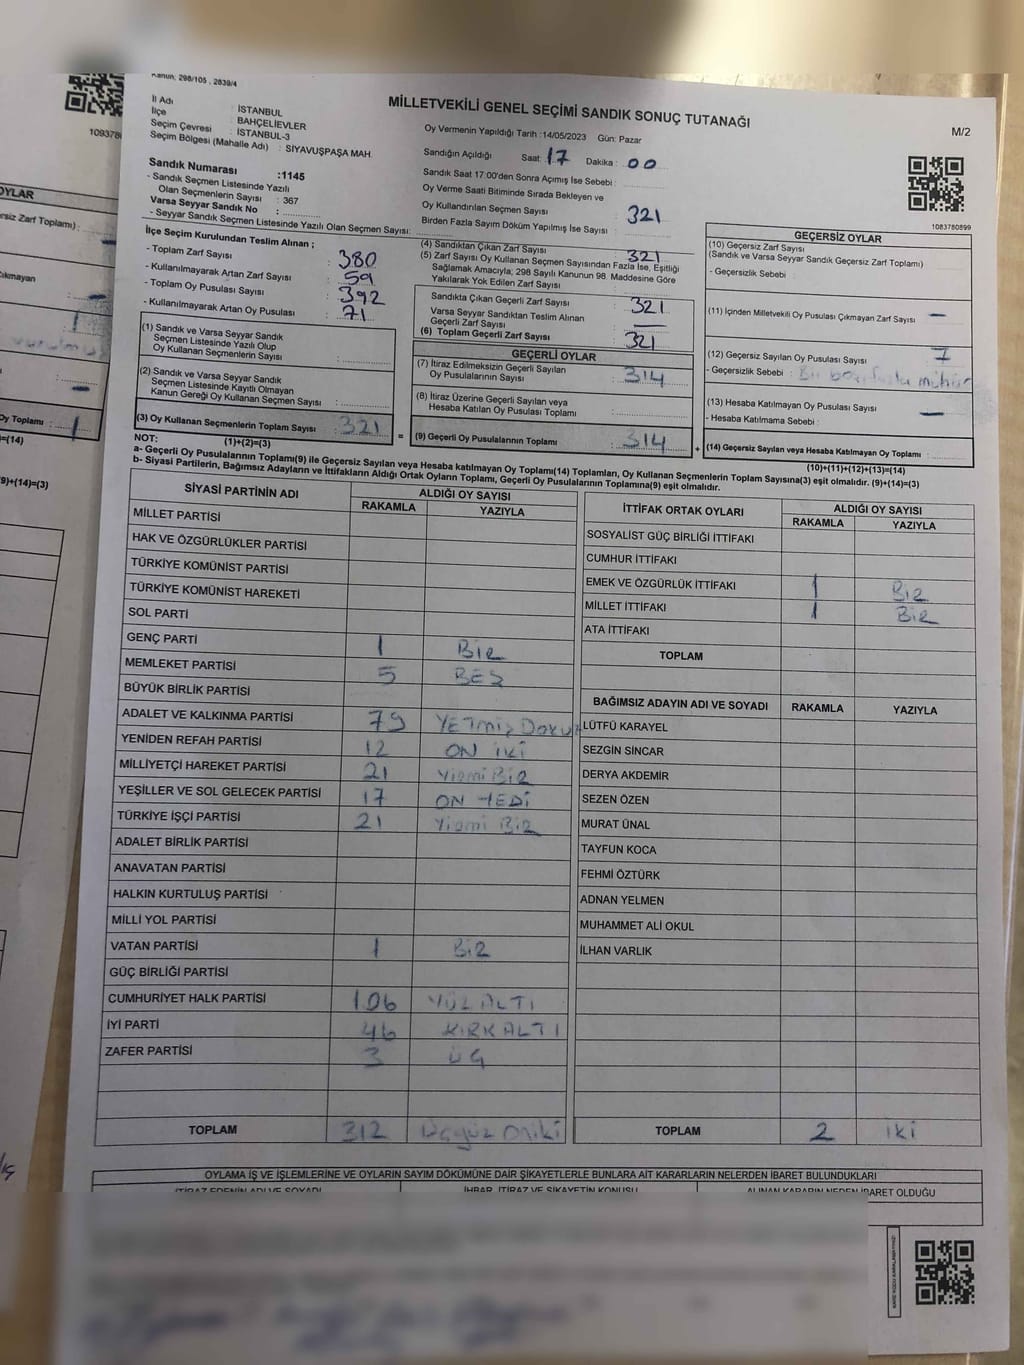 Kanun; 298/105 , 2839/4
MİLLETVEKİLİ GENEL SEÇİMİ SANDIK SONUÇ TUTANAĞI
M/2
İl Adı : İSTANBUL
İlçe : BAHÇELİEVLER
Seçim Çevresi : İSTANBUL-3
Seçim Bölgesi (Mahalle Adı) : SİYAVUŞPAŞA MAH.
Oy Vermenin Yapıldığı Tarih :14/05/2023 Gün: Pazar
Sandığın Açıldığı Saat: 17 Dakika : 00
Sandık Saat 17:00'den Sonra Açımış İse Sebebi :
Oy Verme Saati Bitiminde Sırada Bekleyen ve
Oy Kullandırılan Seçmen Sayısı 321
Birden Fazla Sayım Döküm Yapılmış İse Sayısı :
Sandık Numarası :1145
- Sandık Seçmen Listesinde Yazılı
Olan Seçmenlerin Sayısı : 367
Varsa Seyyar Sandık No :
- Seyyar Sandık Seçmen Listesinde Yazılı Olan Seçmen Sayısı:
1083780899
İlçe Seçim Kurulundan Teslim Alınan ;
- Toplam Zarf Sayısı : 380
- Kullanılmayarak Artan Zarf Sayısı : 59
- Toplam Oy Pusulası Sayısı : 392
- Kullanılmayarak Artan Oy Pusulası : 71
(1) Sandık ve Varsa Seyyar Sandık
Seçmen Listesinde Yazılı Olup
Oy Kullanan Seçmenlerin Sayısı :
(2) Sandık ve Varsa Seyyar Sandık
Seçmen Listesinde Kayıtlı Olmayan
Kanun Gereği Oy Kullanan Seçmen Sayısı :
(3) Oy Kullanan Seçmenlerin Toplam Sayısı : 321
(1)+(2)=(3)
(4) Sandıktan Çıkan Zarf Sayısı : 321
(5) Zarf Sayısı Oy Kullanan Seçmen Sayısından Fazla İse, Eşitliği
Sağlamak Amacıyla; 298 Sayılı Kanunun 98. Maddesine Göre
Yakılarak Yok Edilen Zarf Sayısı :
Sandıkta Çıkan Geçerli Zarf Sayısı : 321
Varsa Seyyar Sandıktan Teslim Alınan
Geçerli Zarf Sayısı : —
(6) Toplam Geçerli Zarf Sayısı : 321
GEÇERLİ OYLAR
(7) İtiraz Edilmeksizin Geçerli Sayılan
Oy Pusulalarının Sayısı : 314
(8) İtiraz Üzerine Geçerli Sayılan veya
Hesaba Katılan Oy Pusulası Toplamı :
= (9) Geçerli Oy Pusulalarının Toplamı : 314 +
GEÇERSİZ OYLAR
(10) Geçersiz Zarf Sayısı
(Sandık ve Varsa Seyyar Sandık Geçersiz Zarf Toplamı) :
- Geçersizlik Sebebi :
(11) İçinden Milletvekili Oy Pusulası Çıkmayan Zarf Sayısı : —
(12) Geçersiz Sayılan Oy Pusulası Sayısı : 7
- Geçersizlik Sebebi : Birden fazla mühür
(13) Hesaba Katılmayan Oy Pusulası Sayısı : —
- Hesaba Katılmama Sebebi :
(14) Geçersiz Sayılan veya Hesaba Katılmayan Oy Toplamı :
(10)+(11)+(12)+(13)=(14)
NOT:
a- Geçerli Oy Pusulalarının Toplamı(9) ile Geçersiz Sayılan veya Hesaba katılmayan Oy Toplamı(14) Toplamları, Oy Kullanan Seçmenlerin Toplam Sayısına(3) eşit olmalıdır. (9)+(14)=(3)
b- Siyasi Partilerin, Bağımsız Adayların ve İttifakların Aldığı Ortak Oyların Toplamı, Geçerli Oy Pusulalarının Toplamına(9) eşit olmalıdır.
SİYASİ PARTİNİN ADI ALDIĞI OY SAYISI
RAKAMLA YAZIYLA
MİLLET PARTİSİ
HAK VE ÖZGÜRLÜKLER PARTİSİ
TÜRKİYE KOMÜNİST PARTİSİ
TÜRKİYE KOMÜNİST HAREKETİ
SOL PARTİ
GENÇ PARTİ 1 BİR
MEMLEKET PARTİSİ 5 BEŞ
BÜYÜK BİRLİK PARTİSİ
ADALET VE KALKINMA PARTİSİ 79 YETMİŞ DOKUZ
YENİDEN REFAH PARTİSİ 12 ON İKİ
MİLLİYETÇİ HAREKET PARTİSİ 21 Yirmi Bir
YEŞİLLER VE SOL GELECEK PARTİSİ 17 ON YEDİ
TÜRKİYE İŞÇİ PARTİSİ 21 Yirmi Bir
ADALET BİRLİK PARTİSİ
ANAVATAN PARTİSİ
HALKIN KURTULUŞ PARTİSİ
MİLLİ YOL PARTİSİ
VATAN PARTİSİ 1 BİR
GÜÇ BİRLİĞİ PARTİSİ
CUMHURİYET HALK PARTİSİ 106 YÜZ ALTI
İYİ PARTİ 46 KIRK ALTI
ZAFER PARTİSİ 3 ÜÇ
TOPLAM 312 Üçyüz Oniki
İTTİFAK ORTAK OYLARI ALDIĞI OY SAYISI
RAKAMLA YAZIYLA
SOSYALİST GÜÇ BİRLİĞİ İTTİFAKI
CUMHUR İTTİFAKI
EMEK VE ÖZGÜRLÜK İTTİFAKI 1 BİR
MİLLET İTTİFAKI 1 BİR
ATA İTTİFAKI
TOPLAM
BAĞIMSIZ ADAYIN ADI VE SOYADI RAKAMLA YAZIYLA
LÜTFÜ KARAYEL
SEZGİN SİNCAR
DERYA AKDEMİR
SEZEN ÖZEN
MURAT ÜNAL
TAYFUN KOCA
FEHMİ ÖZTÜRK
ADNAN YELMEN
MUHAMMET ALİ OKUL
İLHAN VARLIK
TOPLAM 2 İKİ
OYLAMA İŞ VE İŞLEMLERİNE VE OYLARIN SAYIM DÖKÜMÜNE DAİR ŞİKAYETLERLE BUNLARA AİT KARARLARIN NELERDEN İBARET BULUNDUKLARI
İTİRAZ EDENİN ADI VE SOYADI İHBAR, İTİRAZ VE ŞİKAYETİN KONUSU ALINAN KARARIN NEDEN İBARET OLDUĞU